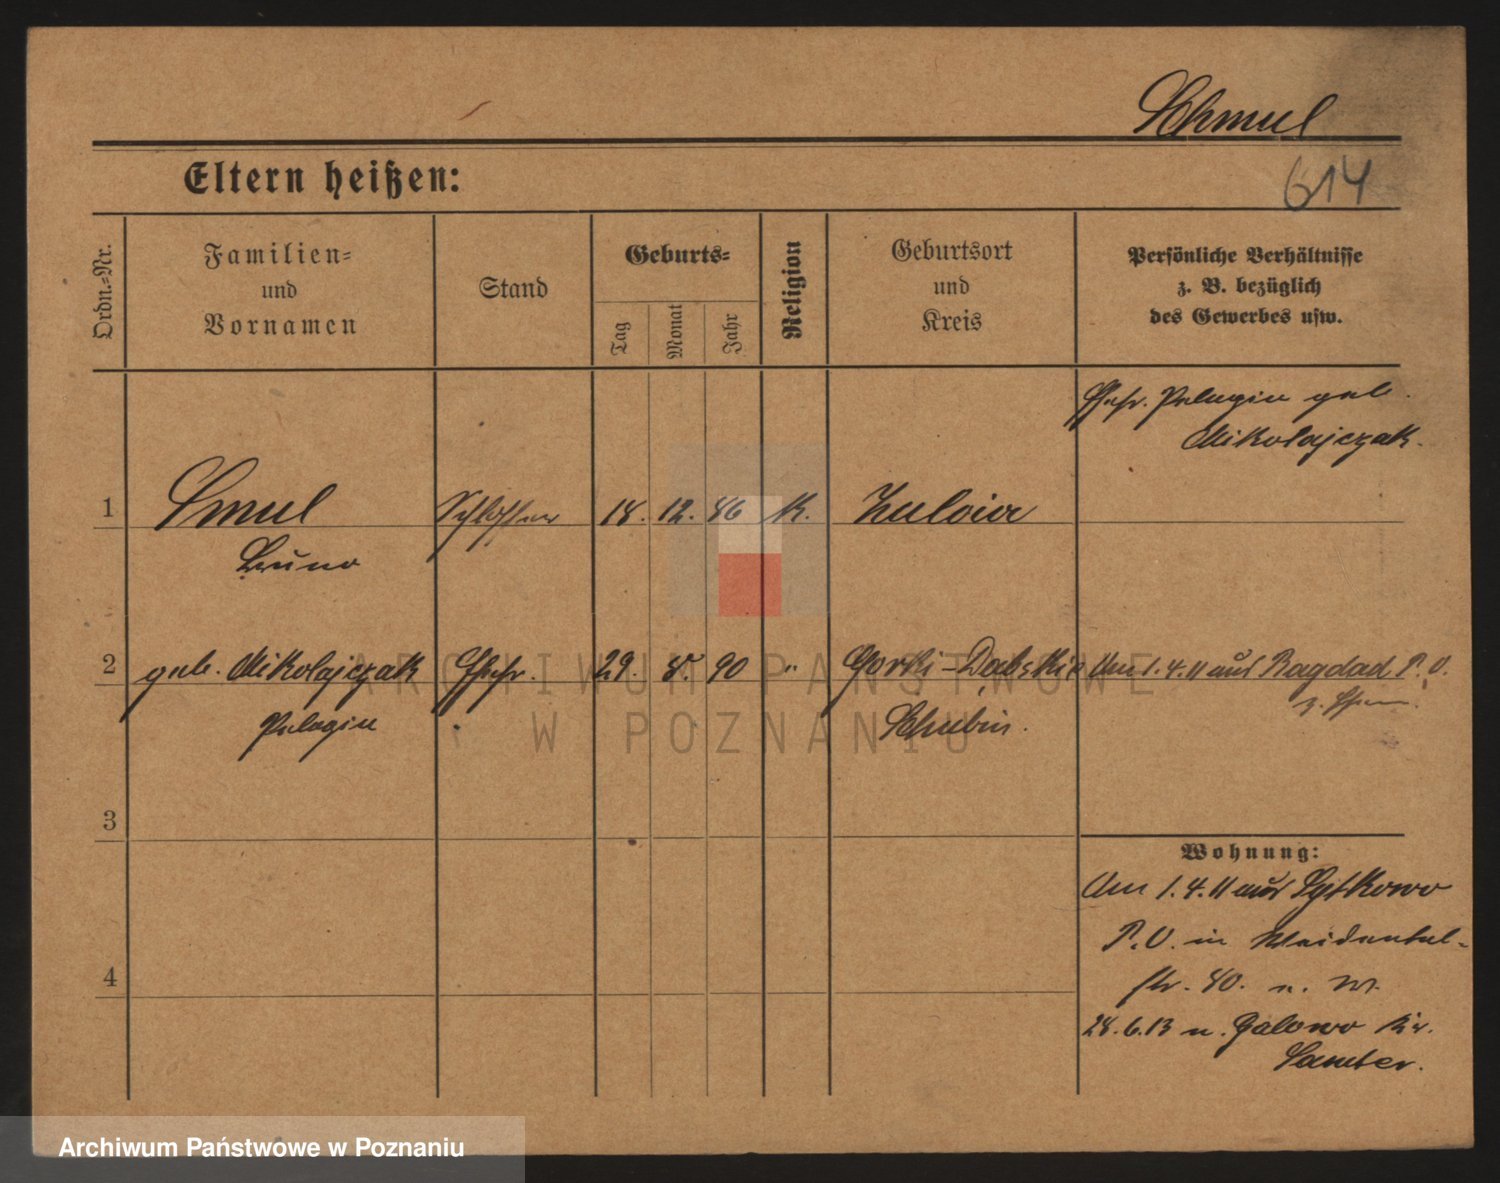 Schmul
614
Eltern heißen:
Ordn.=Nr.
Familien=
und
Vornamen
Stand
Geburts=
Tag
Monat
Jahr
Religion
Geburtsort
und
Kreis
Persönliche Verhältnisse
z. B. bezüglich
des Gewerbes usw.
Ehefr. Pelagia geb.
Mikolajczak.
1 Smul Schlosser 18. 12. 86 K.
Bruno
2 geb. Mikolajczak Ehefr. 29. 8. 90 " Gorki-Dabskie Am 1.4.11 aus Bagdad P. O.
Pelagia Schubin.
z. Ehem.
3
4
Wohnung:
Am 1.4.11 aus Sytkowo
P. O. in Weidental=
str. 80. n. W.
28.6.13 n. Galowo Kr.
Samter.
ARCHIWUM PAŃSTWOWE
W POZNANIU
Archiwum Państwowe w Poznaniu